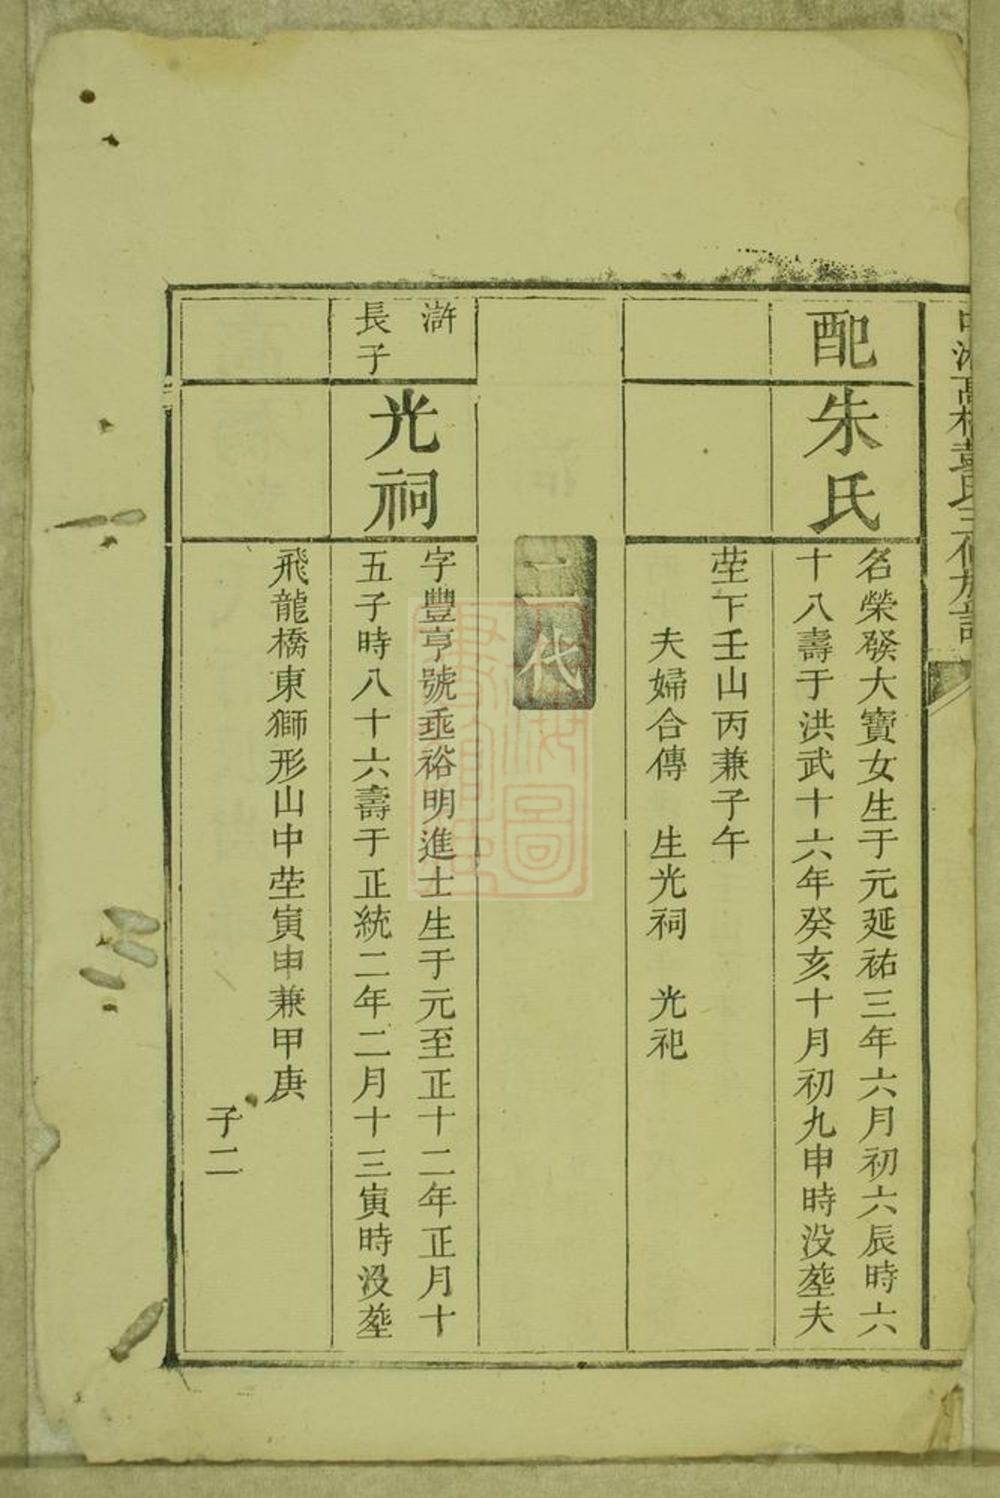 配
朱氏
名榮發大寶女生于元延祐三年六月初六辰時六
十八壽于洪武十六年癸亥十月初九申時没塟夫
茔下壬山丙兼子午
夫婦合傳 生光祠 光祀
二代
滸
長子
光祠
字豐亨號垂裕明進士生于元至正十二年正月十
五子時八十六壽于正統二年二月十三寅時没塟
飛龍橋東獅形山中茔寅申兼甲庚
子二